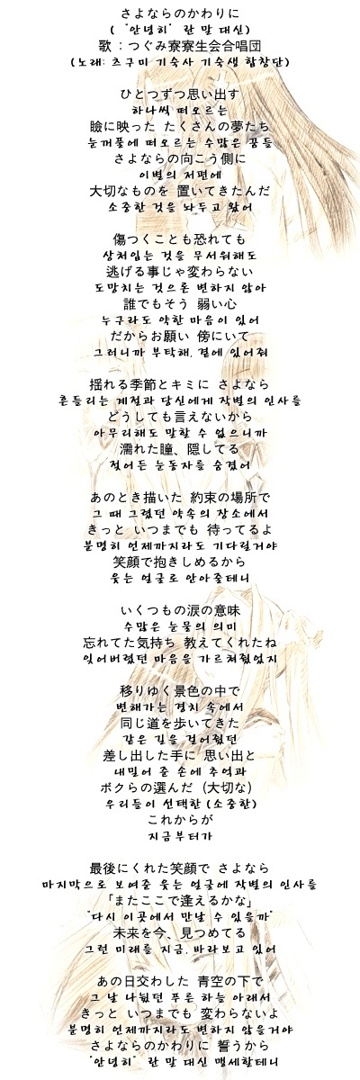 さよならのかわりに
( "안녕히" 란 말 대신)
歌 : つぐみ寮寮生会合唱団
(노래: 츠구미 기숙사 기숙생 합창단)
ひとつずつ思い出す
하나씩 떠오르는
瞼に映った たくさんの夢たち
눈꺼풀에 떠오르는 수많은 꿈들
さよならの向こう側に
이별의 저편에
大切なものを 置いてきたんだ
소중한 것을 놔두고 왔어
傷つくことも恐れても
상처입는 것을 무서워해도
逃げる事じゃ変わらない
도망치는 것으론 변하지 않아
誰でもそう 弱い心
누구라도 약한 마음이 있어
だからお願い 傍にいて
그러니까 부탁해, 곁에 있어줘
揺れる季節とキミに さよなら
흔들리는 계절과 당신에게 작별의 인사를
どうしても言えないから
아무리해도 말할 수 없으니까
濡れた瞳、隠してる
젖어든 눈동자를 숨겼어
あのとき描いた 約束の場所で
그 때 그렸던 약속의 장소에서
きっと いつまでも 待ってるよ
분명히 언제까지라도 기다릴거야
笑顔で抱きしめるから
웃는 얼굴로 안아줄테니
いくつもの涙の意味
수많은 눈물의 의미
忘れてた気持ち 教えてくれたね
잊어버렸던 마음을 가르쳐줬었지
移りゆく景色の中で
변해가는 경치 속에서
同じ道を歩いてきた
같은 길을 걸어왔던
差し出した手に 思い出と
내밀어 준 손에 추억과
ボクらの選んだ (大切な)
우리들이 선택한 (소중한)
これからが
지금부터가
最後にくれた笑顔で さよなら
마지막으로 보여준 웃는 얼굴에 작별의 인사를
「またここで逢えるかな」
"다시 이곳에서 만날 수 있을까"
未来を今、見つめてる
그런 미래를 지금, 바라보고 있어
あの日交わした 青空の下で
그 날 나눴던 푸른 하늘 아래서
きっと いつまでも 変わらないよ
분명히 언제까지라도 변하지 않을거야
さよならのかわりに 誓うから
"안녕히" 란 말 대신 맹세할테니